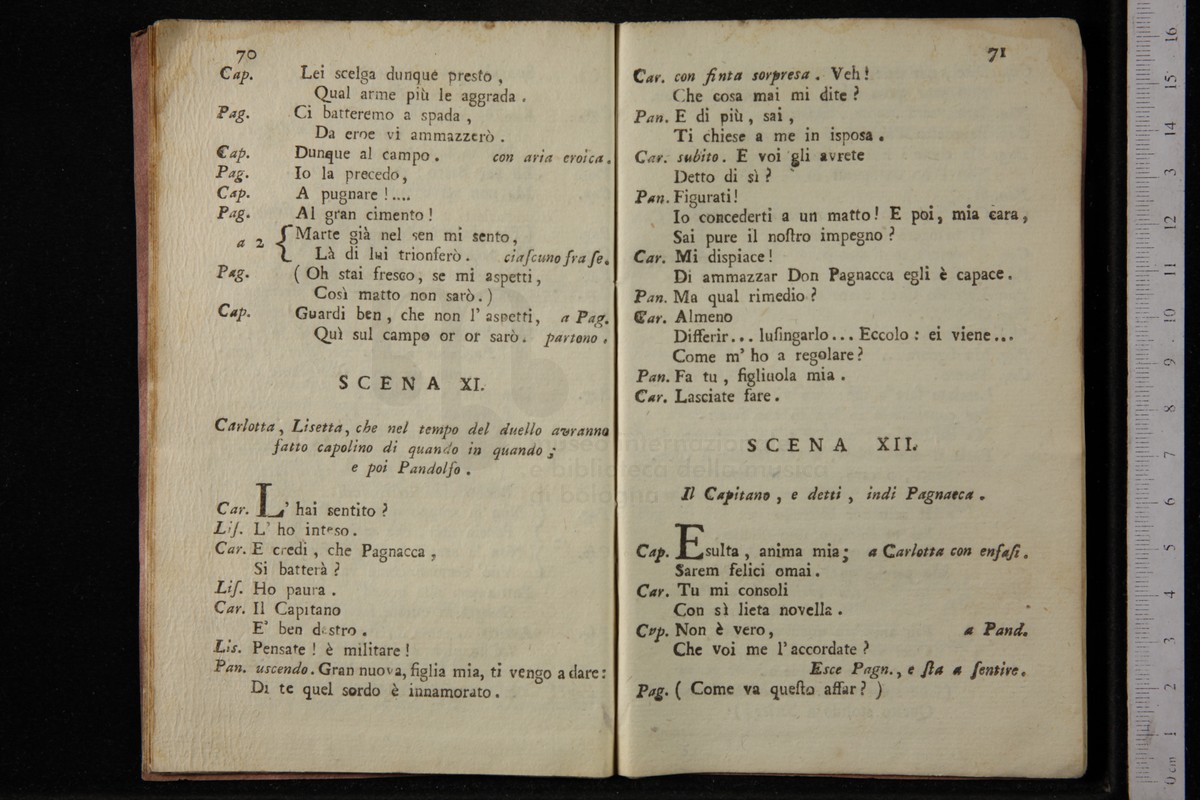 70
Cap. Lei scelga dunque presto ,
Qual arme più le aggrada .
Pag. Ci batteremo a spada ,
Da eroe vi ammazzerò .
Cap. Dunque al campo . con aria eroica .
Pag. Io la precedo,
Cap. A pugnare !....
Pag. Al gran cimento !
a 2 { Marte già nel sen mi sento,
Là di lui trionferò . ciaſcuno fra ſe.
Pag. ( Oh stai fresco, se mi aspetti,
Così matto non sarò. )
Cap. Guardi ben , che non l' aspetti, a Pag.
Quì sul campo or or sarò. partono .
SCENA XI.
Carlotta, Lisetta, che nel tempo del duello avranno
fatto capolino di quando in quando ;
e poi Pandolfo .
Car. L' hai sentito ?
Liſ. L' ho inteso.
Car. E credi , che Pagnacca ,
Si batterà ?
Liſ. Ho paura .
Car. Il Capitano
E' ben destro .
Lis. Pensate ! è militare !
Pan. uscendo. Gran nuova, figlia mia, ti vengo a dare:
Di te quel sordo è innamorato .
71
Car. con finta sorpresa . Veh !
Che cosa mai mi dite ?
Pan. E di più , sai ,
Ti chiese a me in isposa .
Car. subito. E voi gli avrete
Detto di sì ?
Pan. Figurati !
Io concederti a un matto! E poi, mia cara,
Sai pure il noſtro impegno ?
Car. Mi dispiace !
Di ammazzar Don Pagnacca egli è capace .
Pan. Ma qual rimedio ?
Car. Almeno
Differir... luſingarlo... Eccolo : ei viene...
Come m' ho a regolare ?
Pan. Fa tu , figliuola mia .
Car. Lasciate fare .
SCENA XII.
Il Capitano , e detti , indi Pagnacca .
Cap. Esulta , anima mia ; a Carlotta con enfaſi .
Sarem felici omai .
Car. Tu mi consoli
Con sì lieta novella .
Cap. Non è vero, a Pand.
Che voi me l' accordate ?
Esce Pagn., e ſta a ſentire.
Pag. ( Come va queſto affar ? )
museo internazionale
e biblioteca della musica
di bologna
0 cm 1 2 3 4 5 6 7 8 9 10 11 12 13 14 15 16